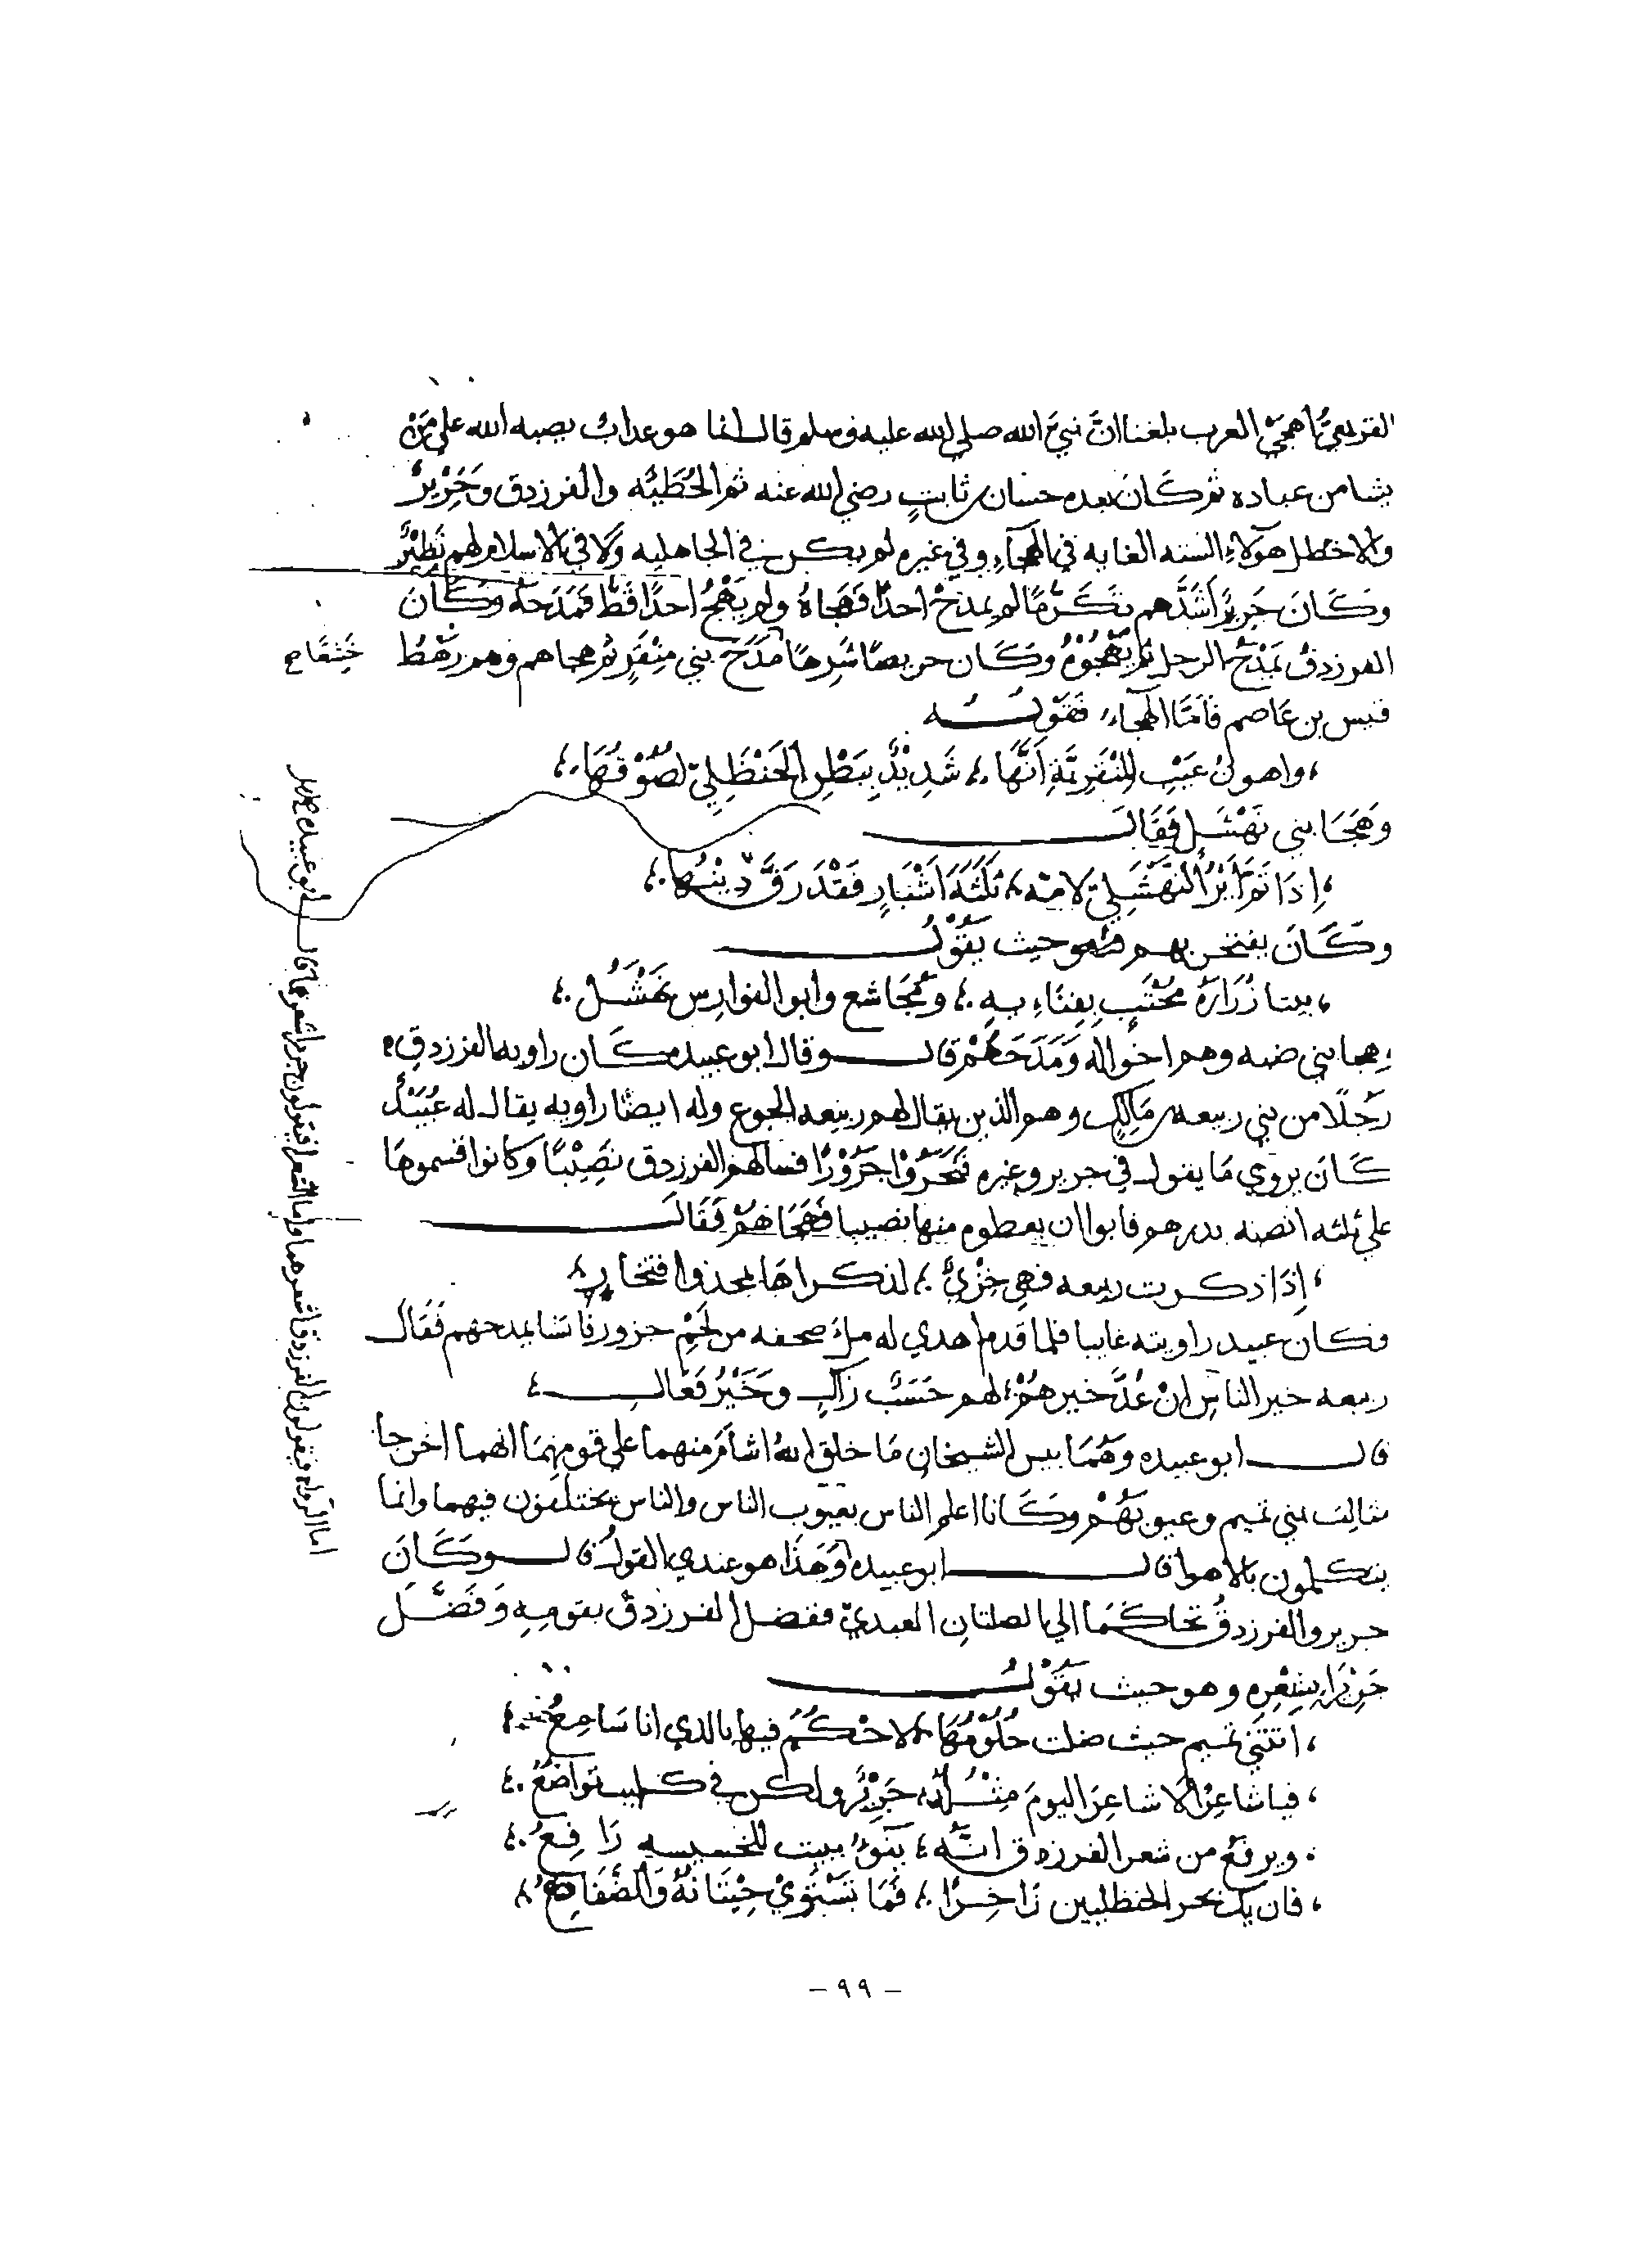 القريعيُّ اهجىَ العرب بلغنا انَّ نبيَّ الله صلى الله عليه وسلم قال انما هو عذابٌ يصبه الله على مَنْ
يشا من عباده ثم كَانَ بعده حسان بن ثابتٍ رضي الله عنه ثم الحُطَيْئه والفرزدق وَجَرْيرٌ
والاخطل هوَلاءِ السته الغايه في الهجآءِ وفي غيره لم يكن في الجاهليه وَلا في الاسلام لهم نَظِيْرٌ
وكَانَ جَرِيرٌ اَشَدَّهم تكَرُّمًا لم يمدَحْ احدًا فَهَجَاهُ ولم يَهْجُ احدًا قَطُّ فَمَدَحَهُ وكَانَ
الفرزدقُ يَمْدَحُ الرجل ثم يَهْجُوْهُ وكَان حريصًا شَرِهًا مَدَحَ بني مِنْقَرٍ ثم هجاهم وهم رَهْطُ
قيس بن عَاصم فَامَّا الهجآء فَقَوْلُه
واهونُ عَيْبِ المِنْقَرِيَّةِ اَنَّهَا شَدِيْدٌ بِبَطْنِ الحَنْظَلِيِّ لصُوْقُهَا
وَهَجَا بني نَهْشَل فَقَالَ
اِذَا تمَّ اَيْرُ النَهْشَلِيّ لامّه ثلثَةَ اَشْبَارٍ فَقَدْ رَقَّ دِيْنُها
وكَانَ يفتخر بهم فهو حيث يَقُوْلُ
بيتا زُرَارَةُ مُحْتَبٍ بِفِنَاءِ به وَمُجَاشع وابو الفوارِس نَهْشَلُ
وهجا بني ضبه وهم اخواله وَمَدَحَهُمْ قال وقال ابو عبيده كَان راويه الفرزدقِ
رَجُلًا من بني ربيعه بن مَالِكٍ وهو الذين يقال لهم ربيعه الجوع وله ايضًا راويه يقال له عُبَيْدٌ
كَانَ يروي مَا يقول في جرير وغيره نَحَرُوْا جَزُوْرًا فسالهم الفرزدق نَصِيْبًا وكانوا قسموهَا
على ثلثه انصبه بدرهم فابوا ان يعطوه منها نصيبا فَهَجَاهُمْ فَقَالَ
اِذَا ذكرت ربيعه فهي خِزْيٌ لذكراها بمجد وافتخارِ
وكان عبيد راويته غايبا فلما قدم اهدي له ملءَ صحفه من لَحْمِ جزور فانشا يمدحهم فَقَال
ربيعه خير الناسِ اِنْ عُدَّ خيرهُمْ لهم حَسَبٌ زاكٍ وَخَيْرُ فَعَالِ
قال ابو عبيده وَهُمَا بيس الشيخان مَا خلق الله اشأمَ منهما على قومهِمَا انهما اخرجا
مثالِبَ بني تميم وعيوبَهُمْ وكَانا اعلم الناس بعيوب الناس والناس يختلفون فيهما وانما
يتكلمون بالاهوا قال ابو عبيده وَهَذَا هو عندي القولُ قال وكَانَ
جرير والفرزدقُ تحاكَمَا الى الصلتانِ العبديّ ففضل الفرزدقَ بقومِهِ وَفَضَّلَ
جَرِيْرًا بِشِعْرِهِ وهو حيث يَقُوْلُ
اتتني تميم حيث ضلت حُلُوْمُهَا لاحْكُمَ فيها بالذي انا سَامِعُ
فيا شاعِرًا لا شاعِرَ اليومَ مِثْلُهُ جَرِيْرٌ ولكن في كليب تواضُعُ
ويرفَعُ من شعر الفرزدق انَّهُ يَنُوْءُ ببيت للخسيسه رَافِعُ
فان يكُ بحر الحنظليين زَاخِرًا فَمَا تَسْتَوِيْ حِيْتَانُهُ وَالضَّفَادِعُ
اما الرواه فيقولون الفرزدق اشعرهما واما الشعرا فيقولون جرير اشعرهما قال ابو عبيده
- ٩٩ -